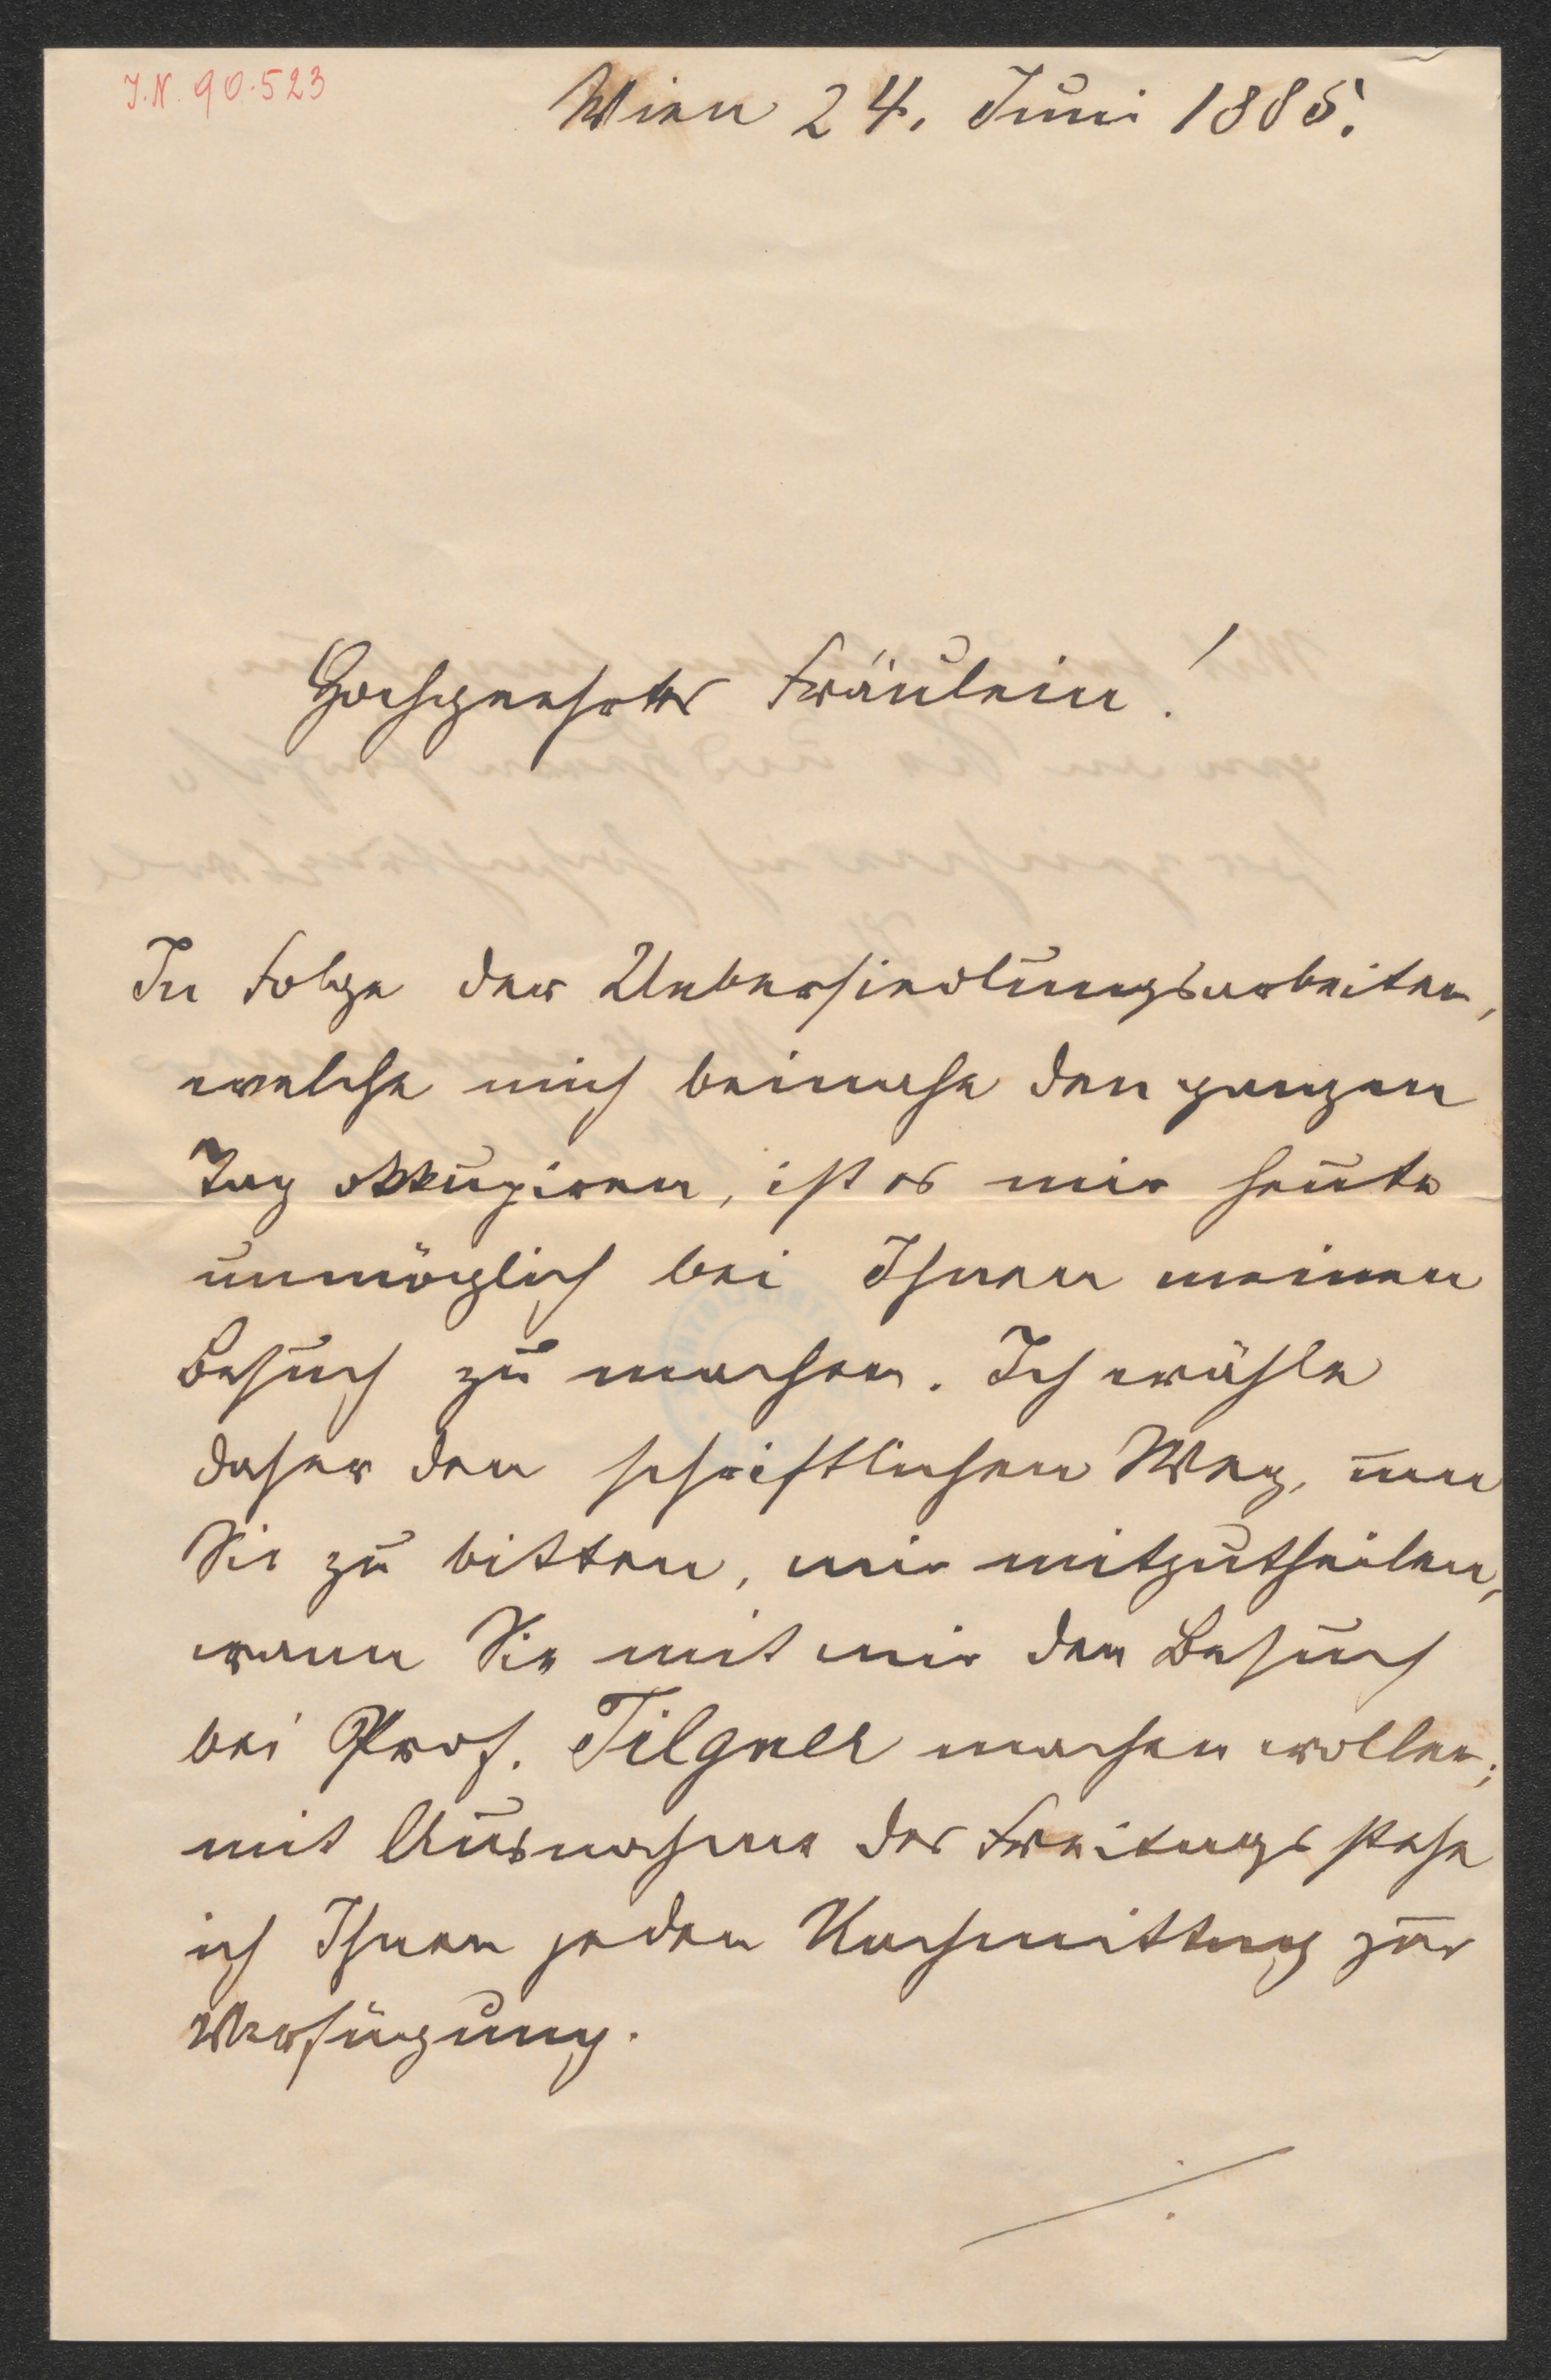 I.N. 90.523
Wien 24. Juni 1885.
Hochgeehrtes Fräulein!
In Folge der Uebersiedlungsarbeiten,
welche mich beinahe den ganzen
Tag okkupiren, ist es mir heute
unmöglich bei Ihnen meinen
Besuch zu machen. Ich wähle
daher den schriftlichen Weg, um
Sie zu bitten, mir mitzutheilen,
wann Sie mit mir den Besuch
bei Prof. Tilgner machen wollen;
mit Ausnahme des Freitags stehe
ich Ihnen jeden Nachmittag zur
Verfügung.